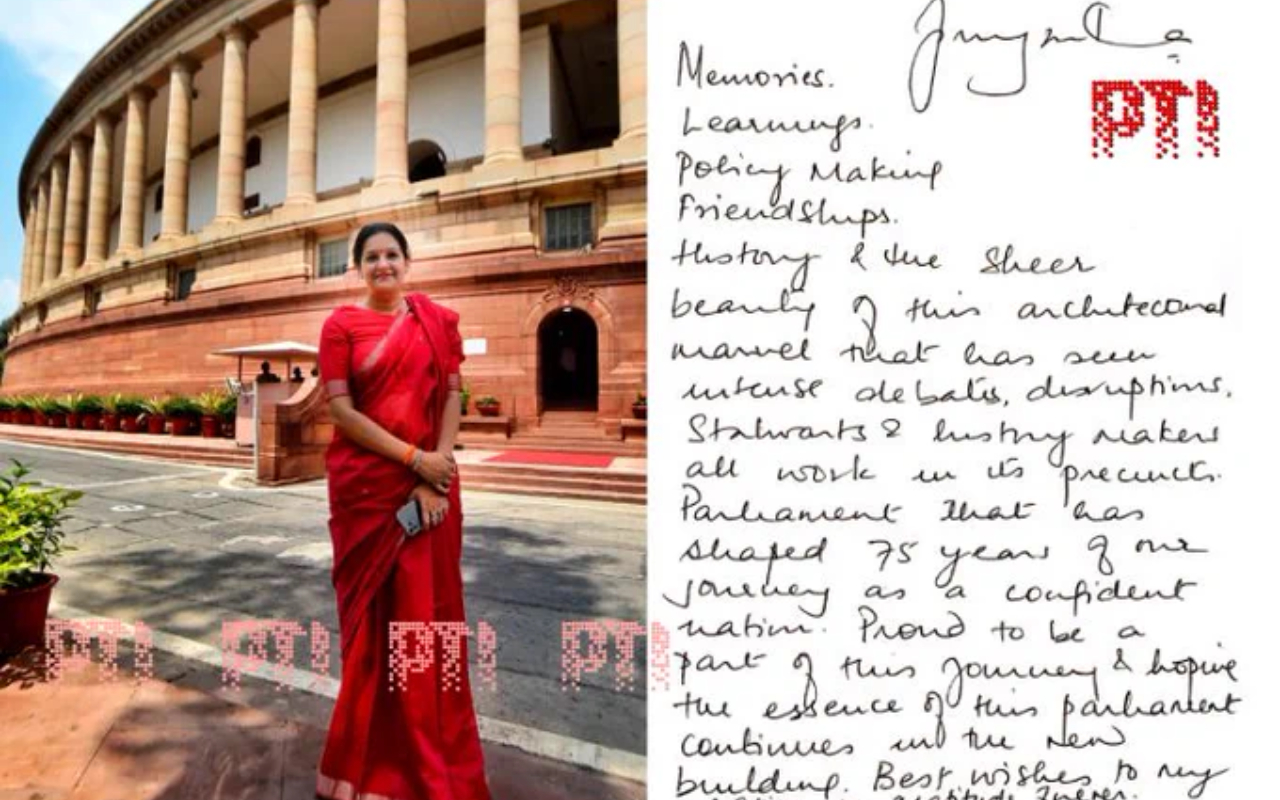 Priyanka
Memories.
Learnings.
Policy Making
Friendships.
History & the sheer
beauty of this architectural
marvel that has seen
intense debates, disruptions.
Stalwarts & history makers
all work in its precincts.
Parliament that has
shaped 75 years of our
journey as a confident
nation. Proud to be a
part of this journey & hoping
the essence of this parliament
continues in the new
building. Best wishes to my
gratitude
PTI
PTI PTI PTI PTI